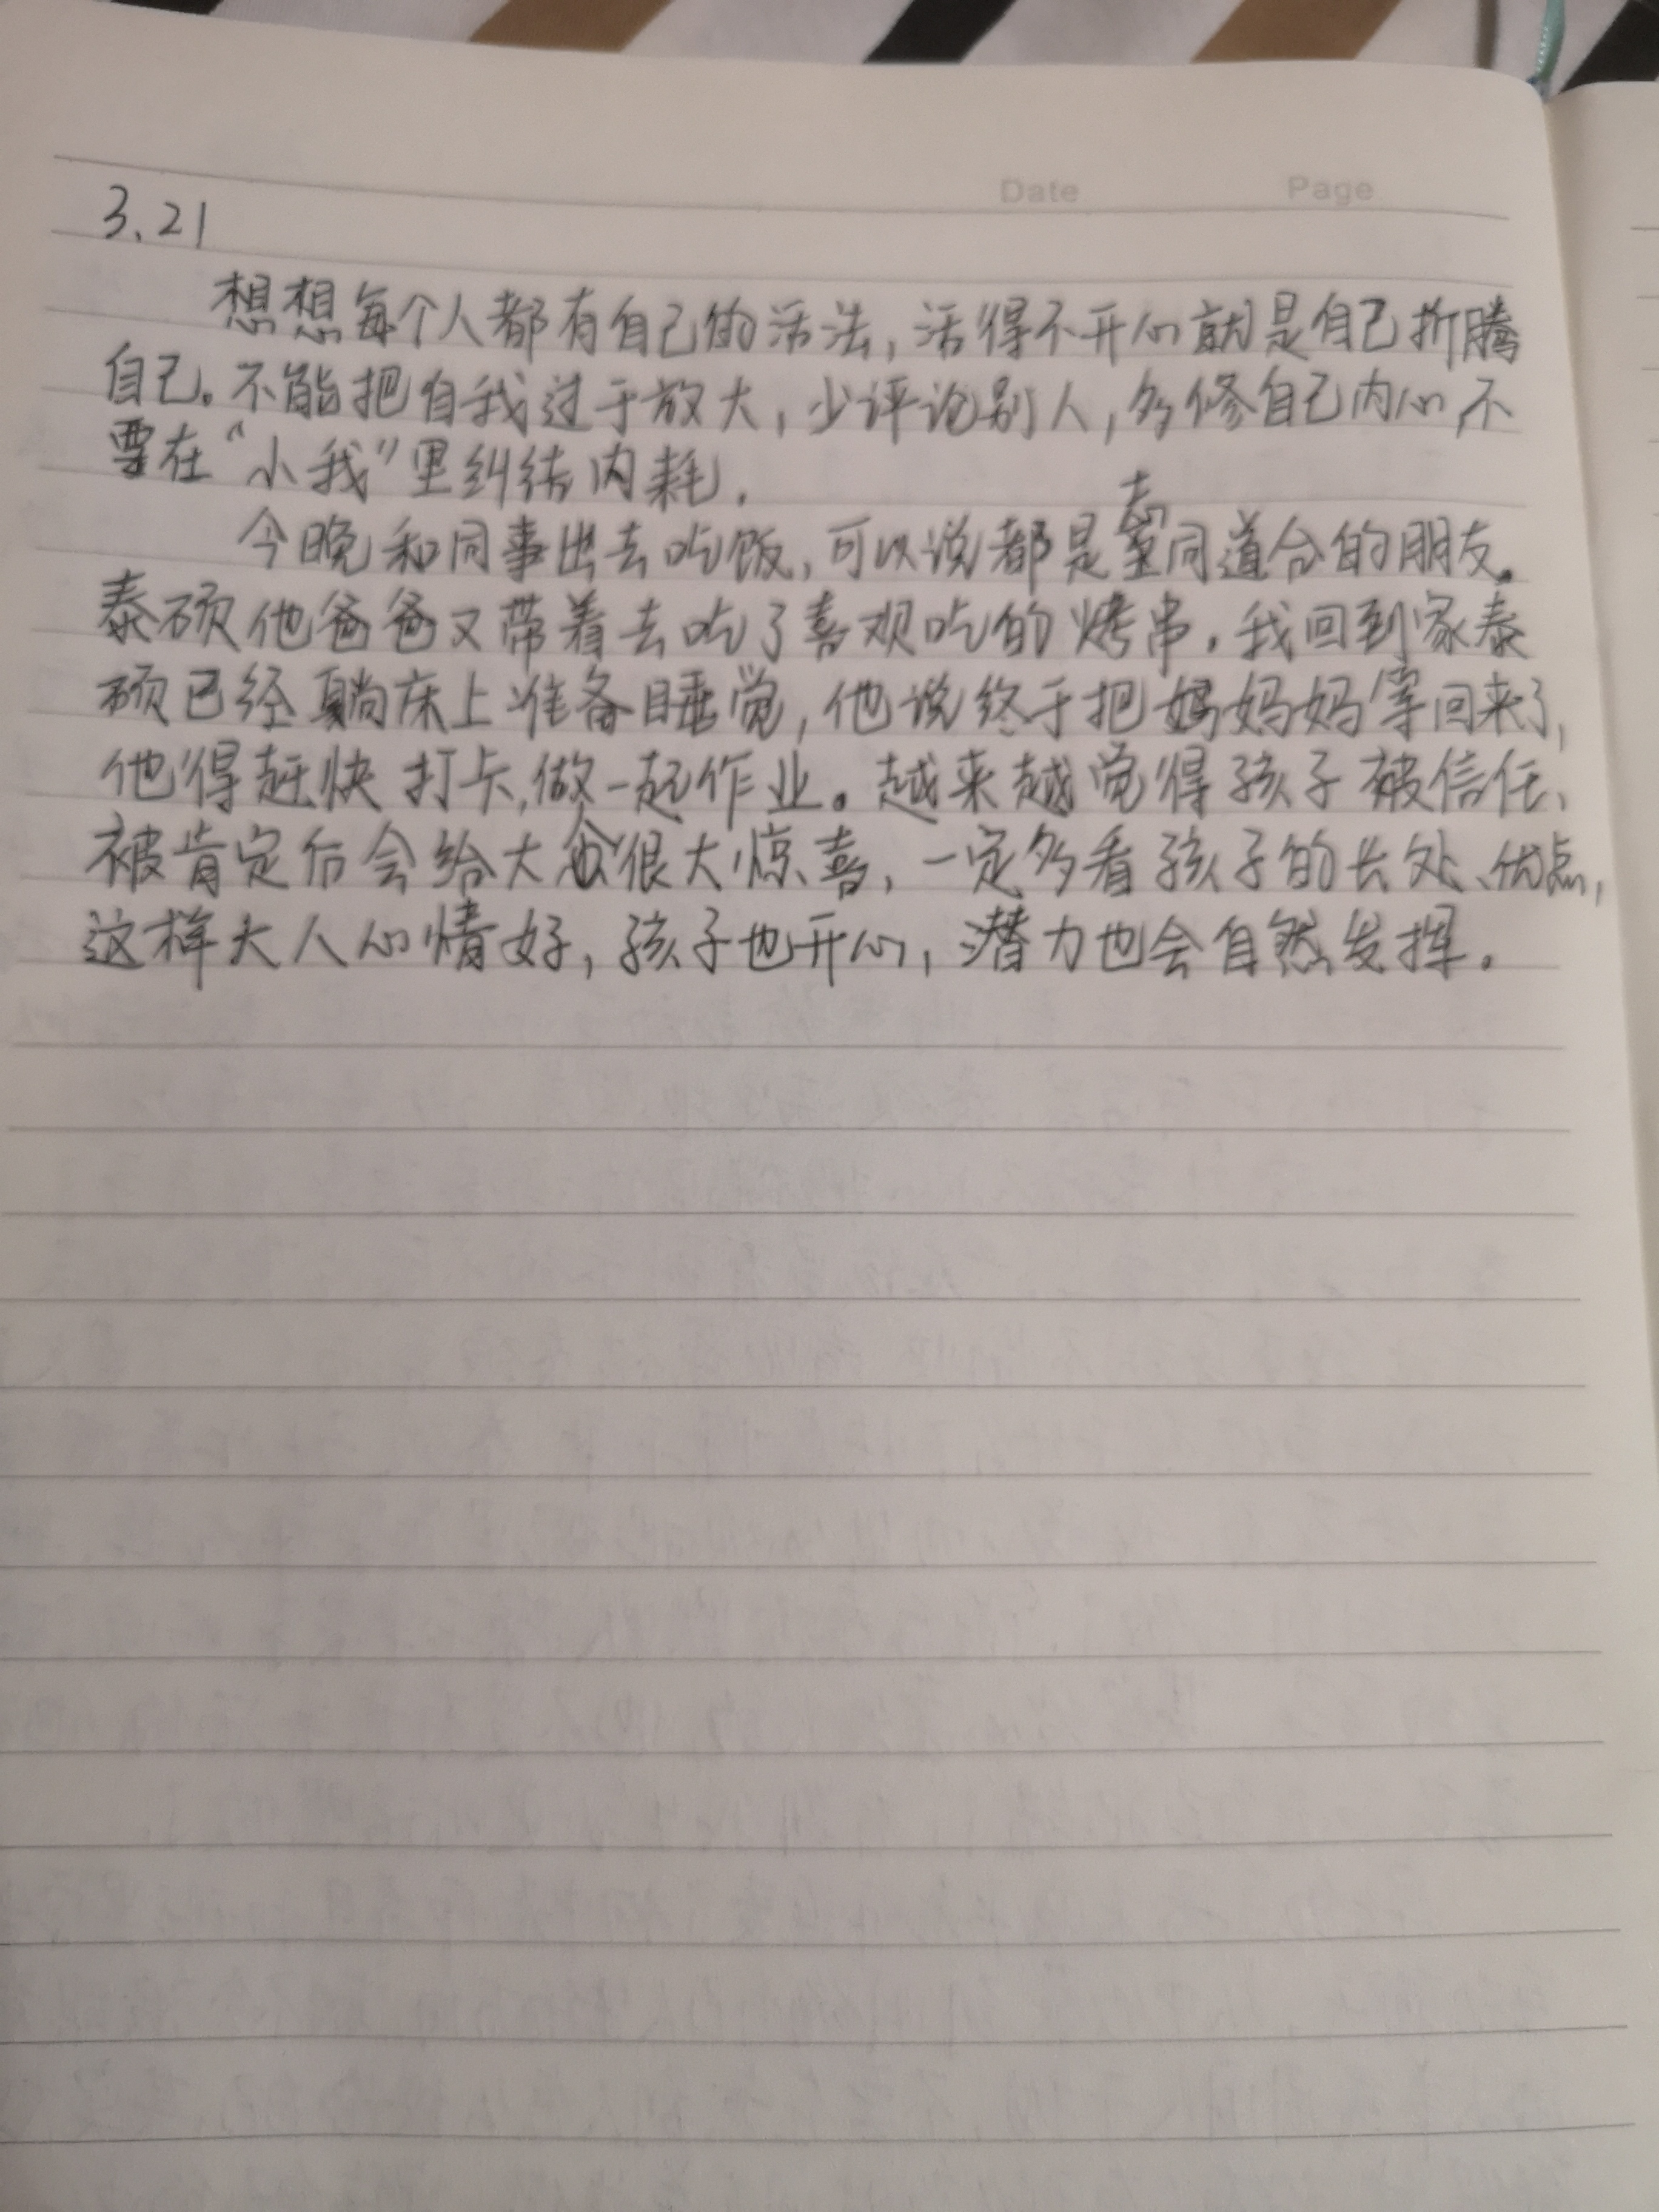 Date Page
3.21
想想每个人都有自己的活法,活得不开心就是自己折腾
自己。不能把自我过于放大,少评论别人,多修自己内心,不
要在“小我”里纠结内耗.
今晚和同事出去吃饭,可以说都是志同道合的朋友.
泰硕他爸爸又带着去吃了喜欢吃的烤串.我回到家泰
硕已经躺床上准备睡觉,他说终于把妈妈妈等回来了,
他得赶快打卡,做一起作业。越来越觉得孩子被信任、
被肯定后会给大人很大惊喜,一定多看孩子的长处、优点,
这样大人心情好,孩子也开心,潜力也会自然发挥.